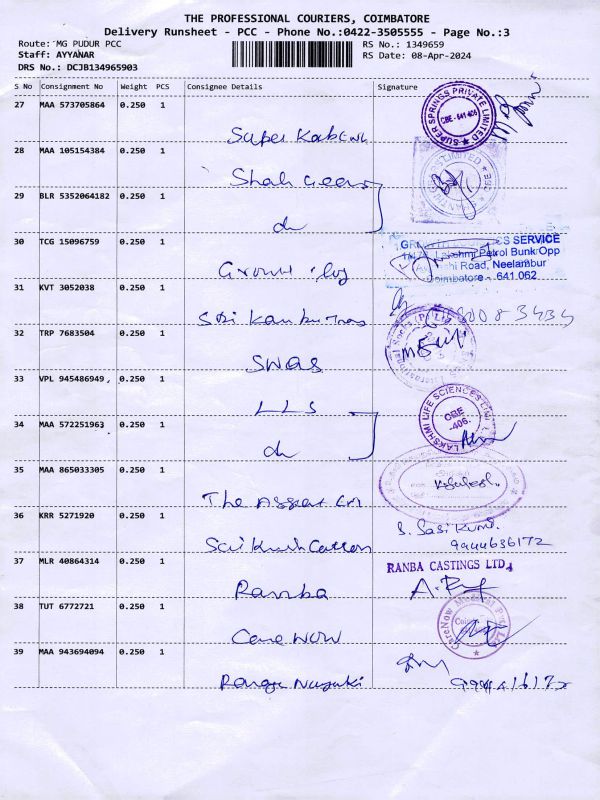 THE PROFESSIONAL COURIERS, COIMBATORE
Delivery Runsheet - PCC - Phone No.:0422-3505555 - Page No.:3
Route: MG PUDUR PCC RS No.: 1349659
Staff: AYYANAR RS Date: 08-Apr-2024
DRS No.: DCJB134965903
S No Consignment No Weight PCS Consignee Details Signature
27 MAA 573705864 0.250 1
SUPER SPRINGS PRIVATE LIMITED CBE - 641 406
Super
28 MAA 105154384 0.250 1
Shah Gears
29 BLR 5352064182 0.250 1
do
30 TCG 15096759 0.250 1
SERVICE
Lakshmi Petrol Bunk Opp
Road, Neelambur
Coimbatore - 641 062
31 KVT 3052038 0.250 1
Sri
32 TRP 7683504 0.250 1
SWAS
33 VPL 945486949, 0.250 1
LLS
LAKSHMI LIFE SCIENCES LIMITED CBE -406.
34 MAA 572251963 0.250 1
do
35 MAA 865033305 0.250 1
The
36 KRR 5271920 0.250 1
S. Sasi
9944636172
37 MLR 40864314 0.250 1
RANBA CASTINGS LTD
Ranba
38 TUT 6772721 0.250 1
Care Now
39 MAA 943694094 0.250 1
Ranga